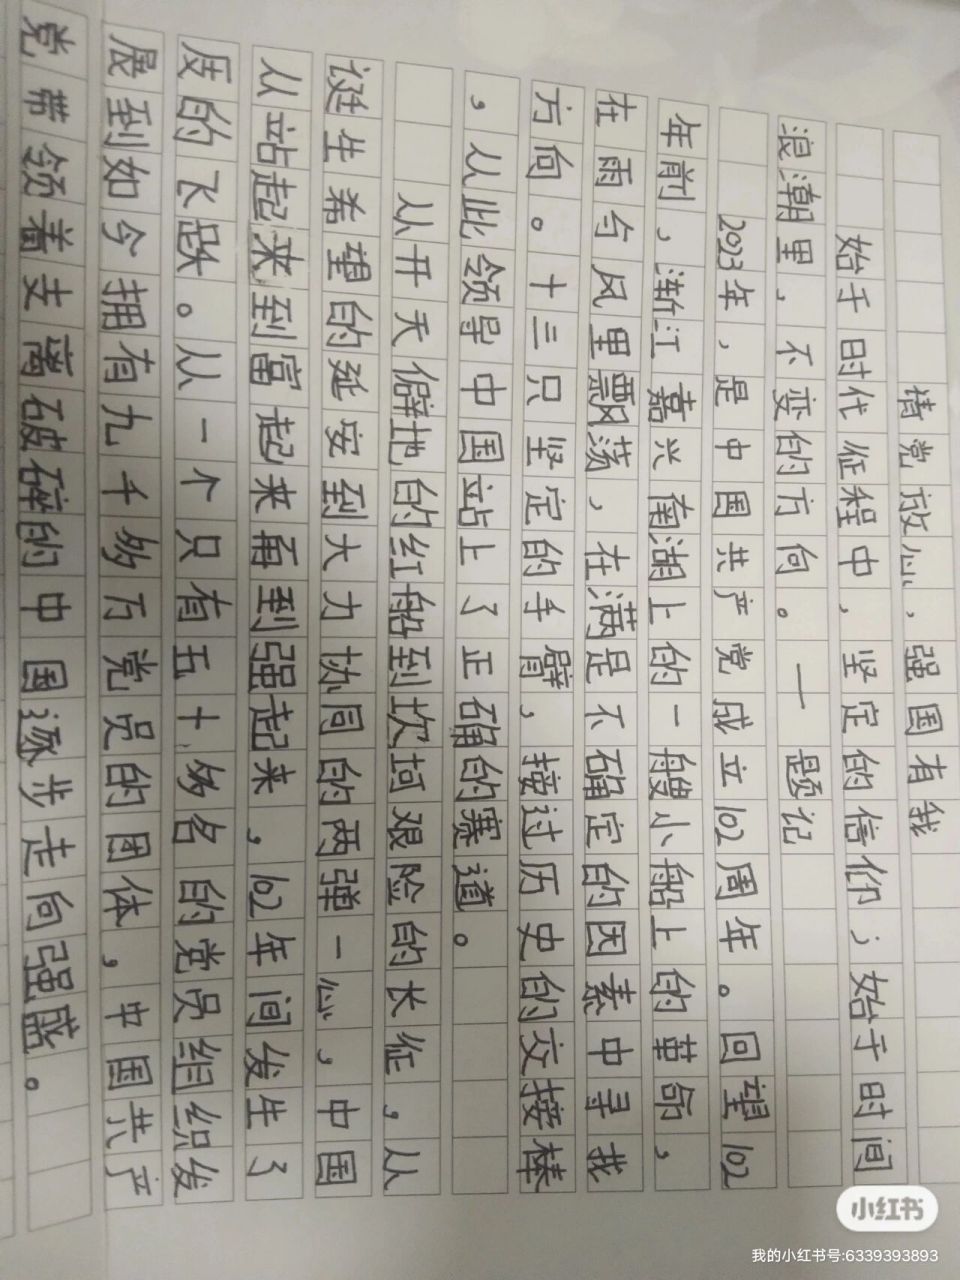 请党放心，强国有我
始于时代征程中，坚定的信仰；始于时间
浪潮里，不变的方向。——题记
2023年，是中国共产党成立102周年。回望102
年前，浙江嘉兴南湖上的一艘小船上的革命，
在雨与风里飘荡，在满是不确定的因素中寻找
方向。十三只坚定的手臂，接过历史的交接棒
，从此领导中国站上了正确的赛道。
从开天僻地的红船到坎坷艰险的长征，从
诞生希望的延安到大力协同的两弹一心，中国
从站起来到富起来再到强起来，102年间发生了
质的飞跃。从一个只有五十多名的党员组织发
展到如今拥有九千多万党员的团体，中国共产
党带领着支离破碎的中国逐步走向强盛。
小红书
我的小红书号:6339393893